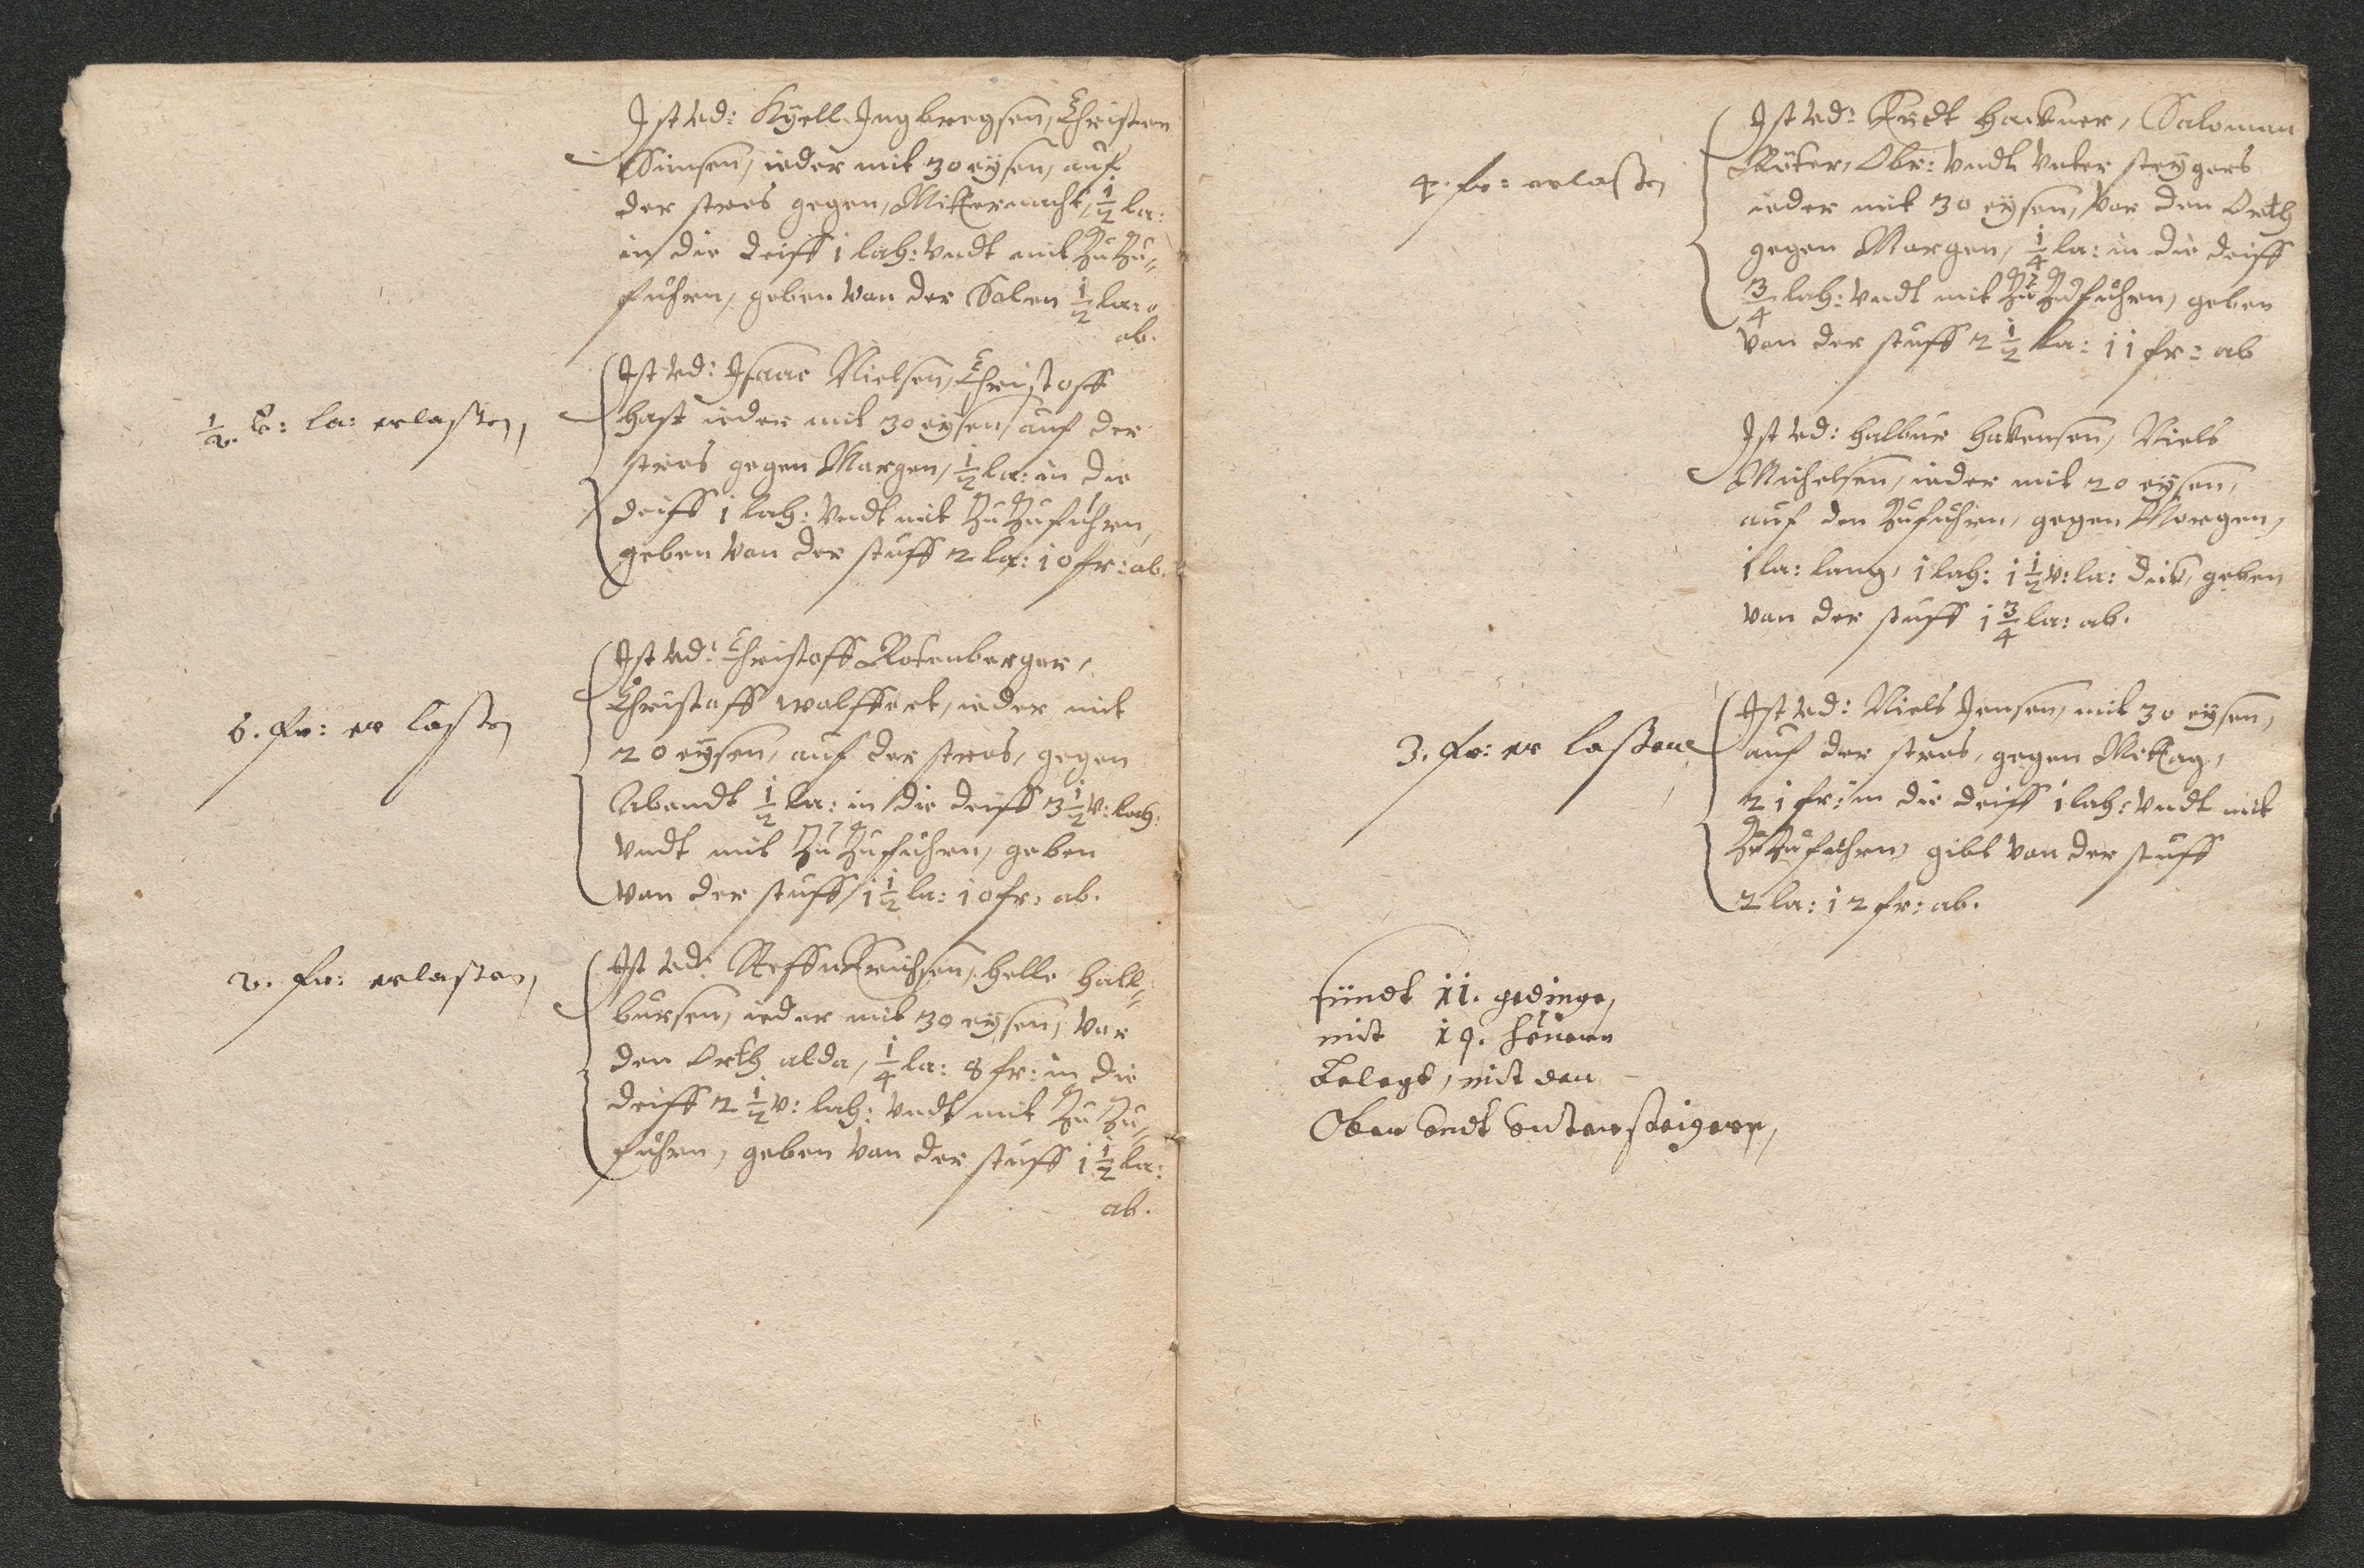 Ist vd: Kÿell Ingbregsen, Christen
Simsen, ieder mit 30 eÿsen, auf
der stros gegen, Mitternacht, 1/2 la:
in die deiff 1 lah: vndt mit Zu Zu=
fuhren, geben von der Solen 1/2 la:
ab.
1/2 v: la: erlaßen,
Ist vd: Isaac Nielsen, Christoff
Hast ieder mit 30 eÿsen auf der
stros gegen Margen, 1/2 la: in die
deiff 1 lah: vndt mit Zu Zufuhren,
geben von der stuff 2 la: 10 fr: ab.
6. fr: er laßen
Ist vd: Christoff Rotenberger,
Christoff Wolffart, ieder mit
20 eÿsen, auf der stros, gegen
Abendt 1/2 la: in die deiff 3 1/2 v: lah:
vndt mit Zu Zufuhren, geben
von der stuff 1 1/2 la: 10 fr: ab.
2. fr: erlaßen,
Ist vd: Steffn Erichsen, Helle Hall=
bursen, ieder mit 30 eÿsen, vor
den Orth alda, 1/4 la: 8 fr: in die
deiff 2 1/2 v: lah: vndt mit Zu Zu=
fuhren, geben von der stuff 1 1/2 la:
ab.
4. fr: erlaßen
Ist vd: Hackner, Saloman
Röter, Obr: vndt vnter steÿgers
ieder mit 30 eÿsen, vor den Orth
gegen Margen, 1/4 la: in die deiff
3/4 lah: vndt mit Zu Zufuhren, geben
von der stuff 2 1/2 la: 11 fr: ab
Ist vd: Halbur Hakensen, Niels
Michelsen, ieder mit 20 eÿsen,
auf den Zufuhren, gegen Morgen,
1 la: lang, 1 lah: 1 1/2 v: la: dick, geben
von der stuff 1 3/4 la: ab.
3. fr: er laßenn
Ist vd: Niels Jensen, mit 30 eÿsen,
auf der stros, gegen Mittag,
21 fr: in die deiff 1 lah: vndt mit
Zu Zufuhren, gibt von der stuff
2 la: 12 fr: ab.
sindt 11. gedinge,
mit 19. heuern
belegt, mit den
Ober vndt vntersteigern,